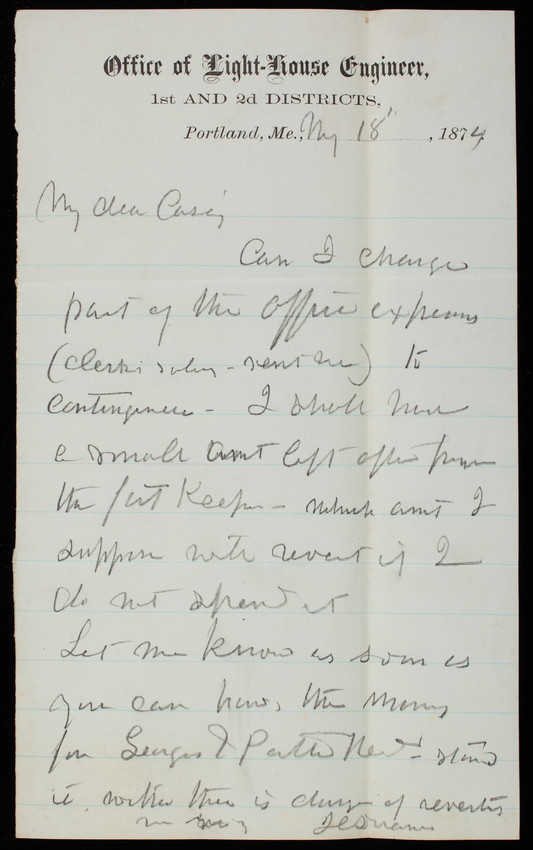 Office of Light-House Engineer,
1st AND 2d DISTRICTS,
Portland, Me., My 18", 1874
My dear Casey
Can I charge
part of the office expenses
(clerks salary - rent &c) to
contingencies - I shall have
a small amt left after
the fort Keeper - which amt I
suppose will revert if I
do not spend it
Let me know as soon as
you can have the money
for Georges & Portld Head -
it. there is danger of reverting